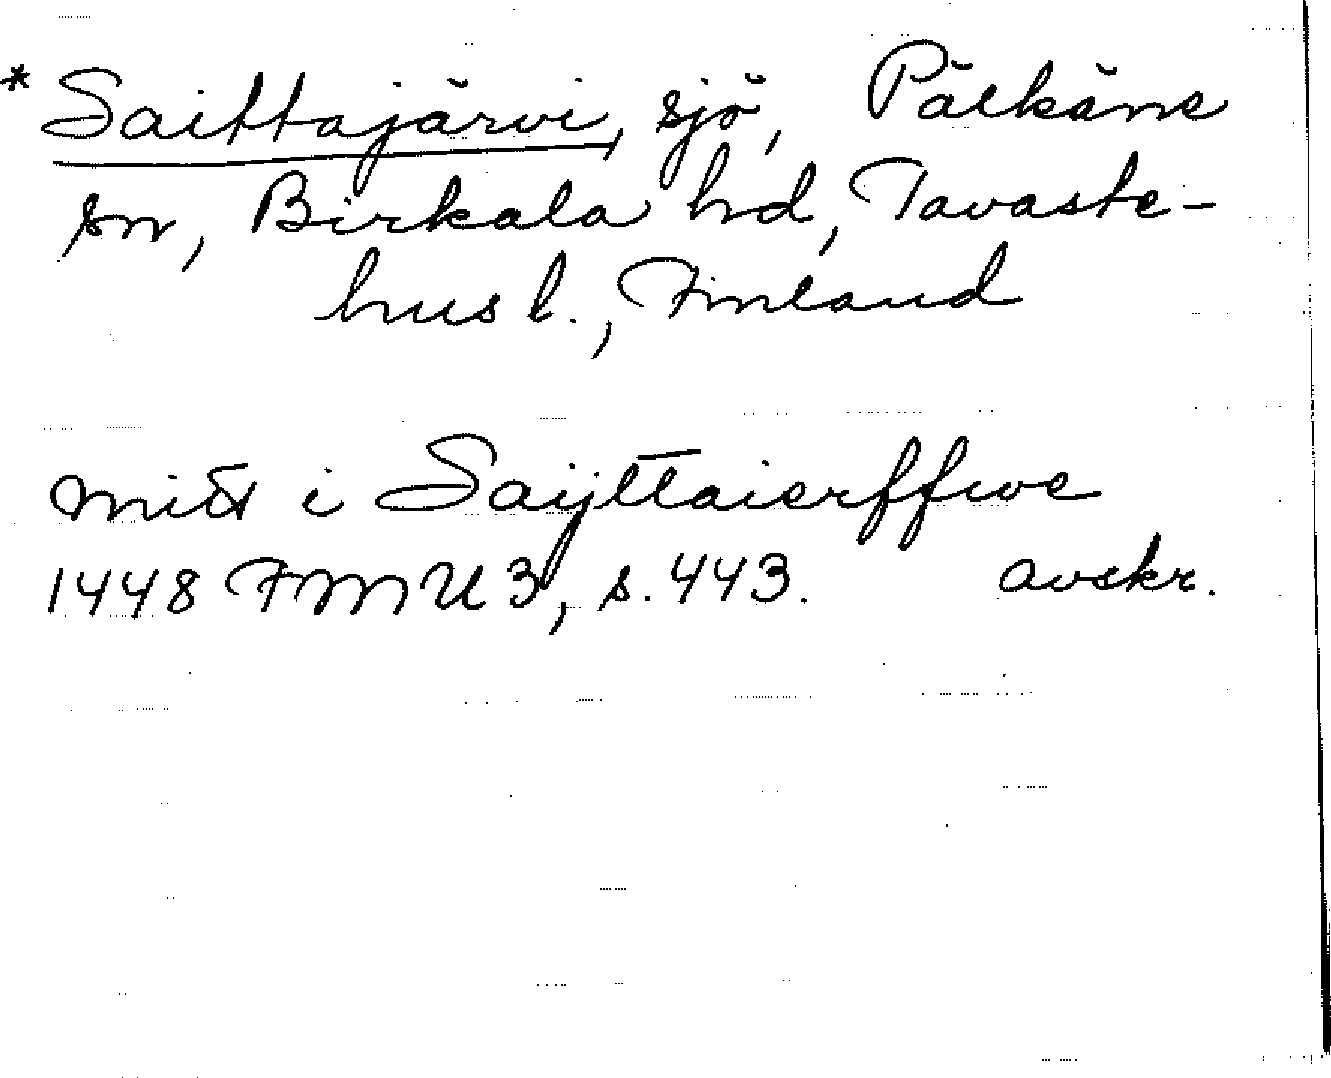 * Saittajärvi, sjö, Pälkäne
sn, Birkala hd, Tavaste-
hus l., Finland
mitt i Saijttaierffwe
1448 FMU 3, s. 443. avskr.